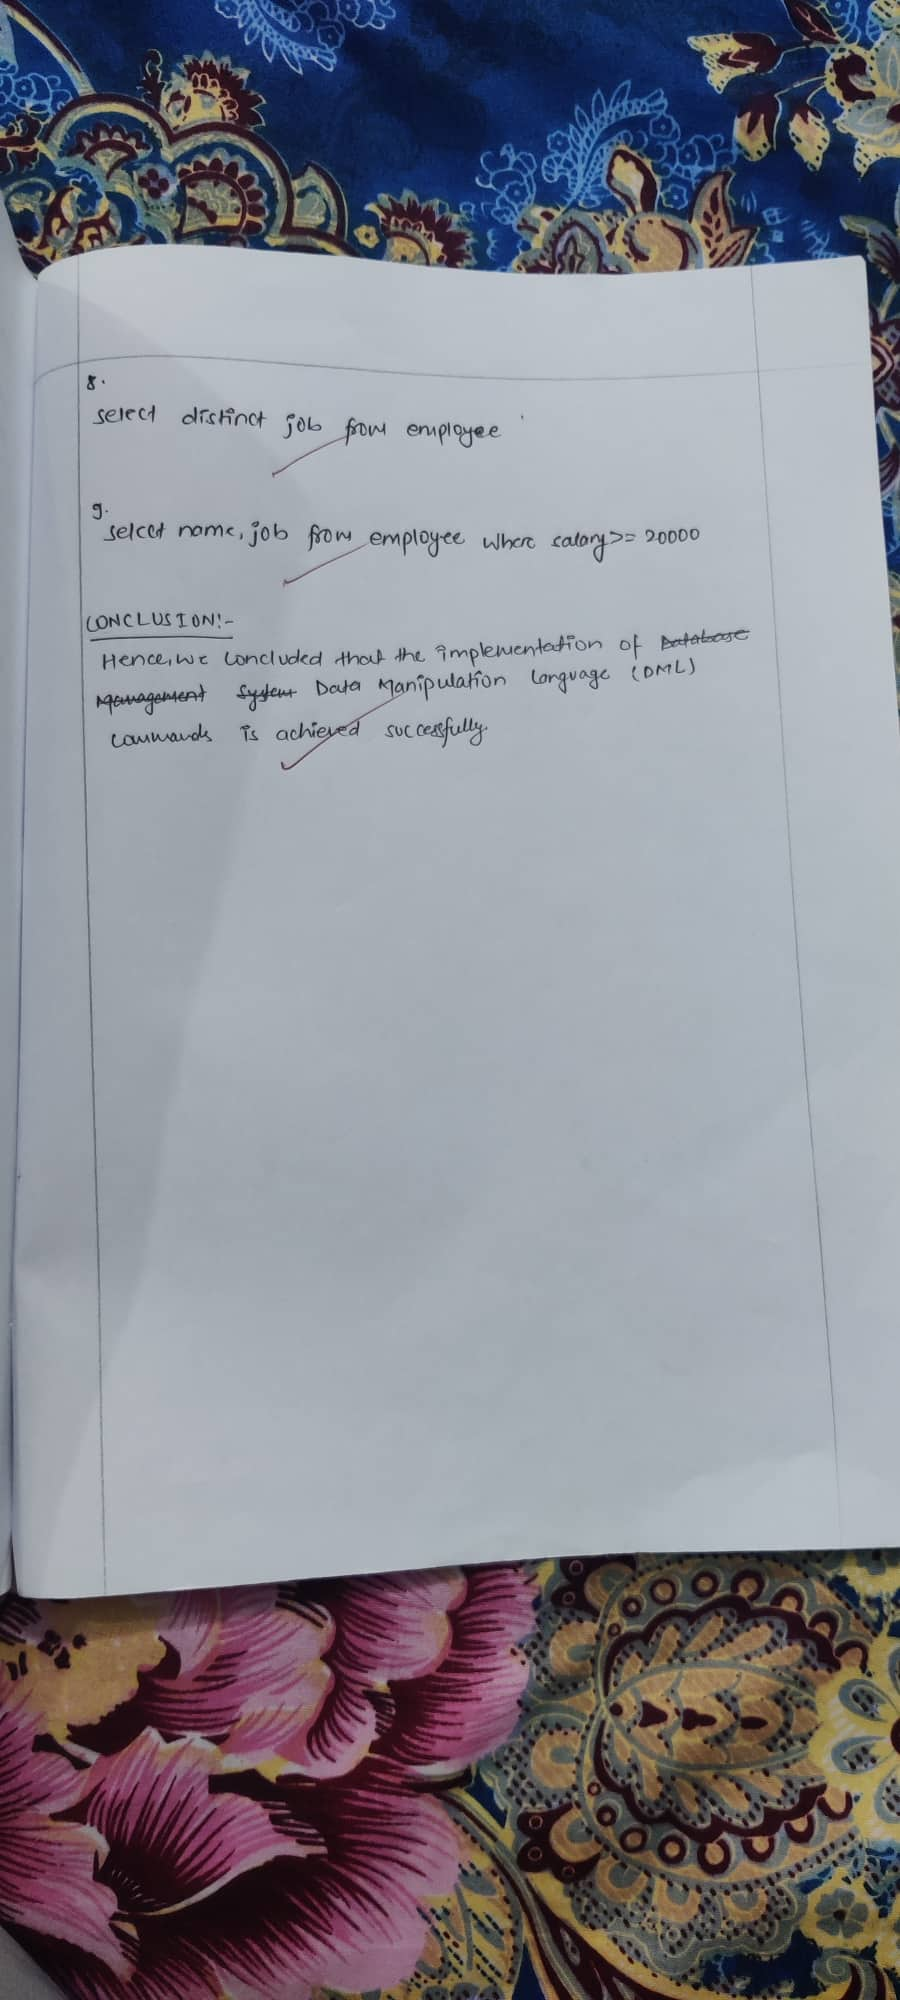 8.
select distinct job from employee
9.
select name, job from employee where salary >= 20000
CONCLUSION:-
Hence, we concluded that the implementation of Database
Management System Data Manipulation Language (DML)
commands is achieved successfully.